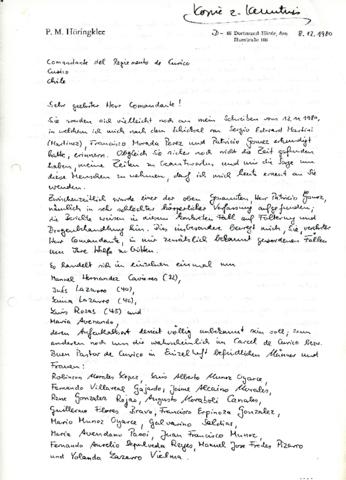 Kopie z. Kenntnis
P. M. Höringklee
D- 46 Dortmund Hörde, den 8.12.1980
Comandante del Regimento de Curico
Curico
Chile
Sehr geehrter Herr Comandante!
Sie werden sich vielleicht noch an mein Schreiben vom 12.11.1980,
in welchem ich mich nach dem Schicksal von Sergio Edward Martini
(Martinez), Francisco Morada Perez und Patricio Gomez erkundigt
hatte, erinnern. Obgleich Sie sicher noch nicht die Zeit gefunden
haben, meine Zeilen zu beantworten und mir die Sorge um
diese Menschen zu nehmen, darf ich mich heute erneut an Sie
wenden.
Zwischenzeitlich wurde einer der oben Genannten, Herr Patricio Gomez,
nämlich in sehr schlechter körperlicher Verfassung aufgefunden;
die Berichte weisen in diesem konkreten Fall auf Folterung und
Drogenbehandlung hin. Dies insbesondere bewegt mich, Sie, verehrter
Herr Comandante, in mir zusätzlich bekannt gewordenen Fällen
um Ihre Hilfe zu bitten.
Es handelt sich im einzelnen einmal um
Manuel Hernandez Cavieres (32),
Inés Lazarro (40),
Lazarro (42),
Luis Rojas (45) und
Maria Avendano,
deren Aufenthaltsort derzeit völlig unbekannt sein soll; zum
anderen noch um die wahrscheinlich im Carcel de Curico bzw.
Buen Pastor de Curico in Einzelhaft befindlichen Männer und
Frauen:
Robinson Morales Lopez, Luis Alberto Munoz Oyarce,
Fernando Villareal Gajardo, Jaime Alcaino Morales,
Rene Gonzales Rojas, Augusto Canales,
Guillermo Flores Bravo, Francisco Espinoza Gonzalez,
Mario Munoz Oyarce, Galvarino
Maria Avendano Pavoi, Juan Francisco Munoz,
Fernando Aurelio Sepulveda Reyes, Manuel Jose Fredes Pizarro
und Yolanda Lazarro Vielma.